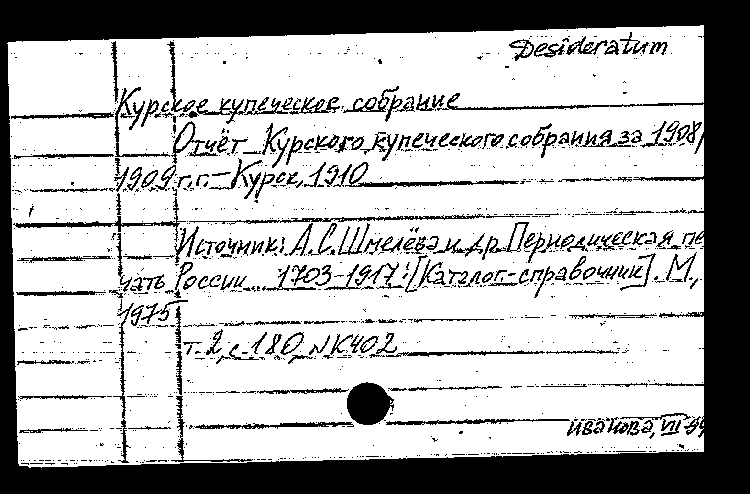 Desideratum
Курское купеческое собрание
Отчёт Курского купеческого собрания за 1908/
1909 г.г. – Курск, 1910
Источник: А.С. Шмелёва и др. Периодическая пе
чать России .. 1703-1917: [Каталог-справочник]. М.,
1975
т. 2, с. 180, N К402
Иванова, VII-99